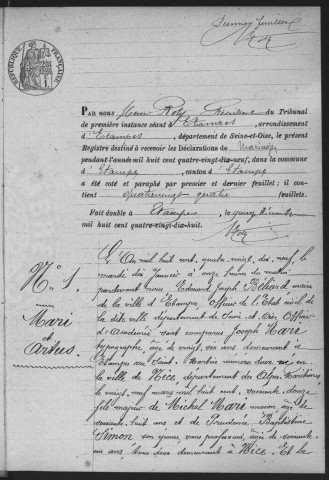 Premier feuillet
RÉPUBLIQUE FRANÇAISE
PAR NOUS Président du Tribunal
de première instance séant à Etampes, arrondissement
d'Etampes, département de Seine-et-Oise, le présent
Registre destiné à recevoir les Déclarations de Mariage
pendant l'année mil huit cent quatre-vingt-dix-neuf, dans la commune
d'Etampes, canton d'Etampes
a été coté et paraphé par premier et dernier feuillet; il
contient quatre vingt quatre feuillets.
Fait double à Etampes, le quinze Décembre
mil huit cent quatre-vingt-dix-huit.
N° 1.
Mari
et
Artus
L'An mil huit cent, quatre-vingt, dix, neuf, le
mardi dix Janvier à onze heures du matin
pardevant nous Edouard Joseph Béliard maire
de la ville d'Etampes Officier de l'Etat civil de
la dite ville département de Seine et Oise, Officier
d'Académie sont comparus Joseph Mari
typographe âgé de vingt, six ans demeurant à
Etampes rue Saint Martin numéro deux né en
la ville de Nice, département des Alpes Maritimes
le vingt, neuf mars mil huit cent, soixante, douze
fils majeur de Michel Mari maçon âgé de
soixante, huit ans et de Prudence Baptistine
Simon son épouse sans profession, âgée de soixante
un ans tous deux demeurant à Nice. Et la